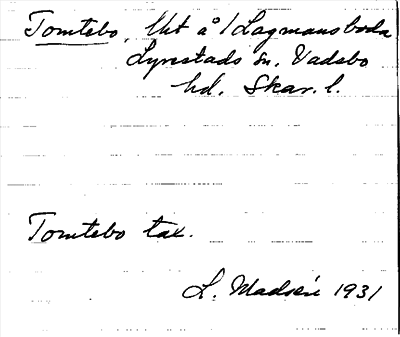 Tomtebo, lht å /Lagmansboda
Lyrestads sn. Vadsbo
hd. Skar. l.
Tomtebo tax.
L. Madsén 1931